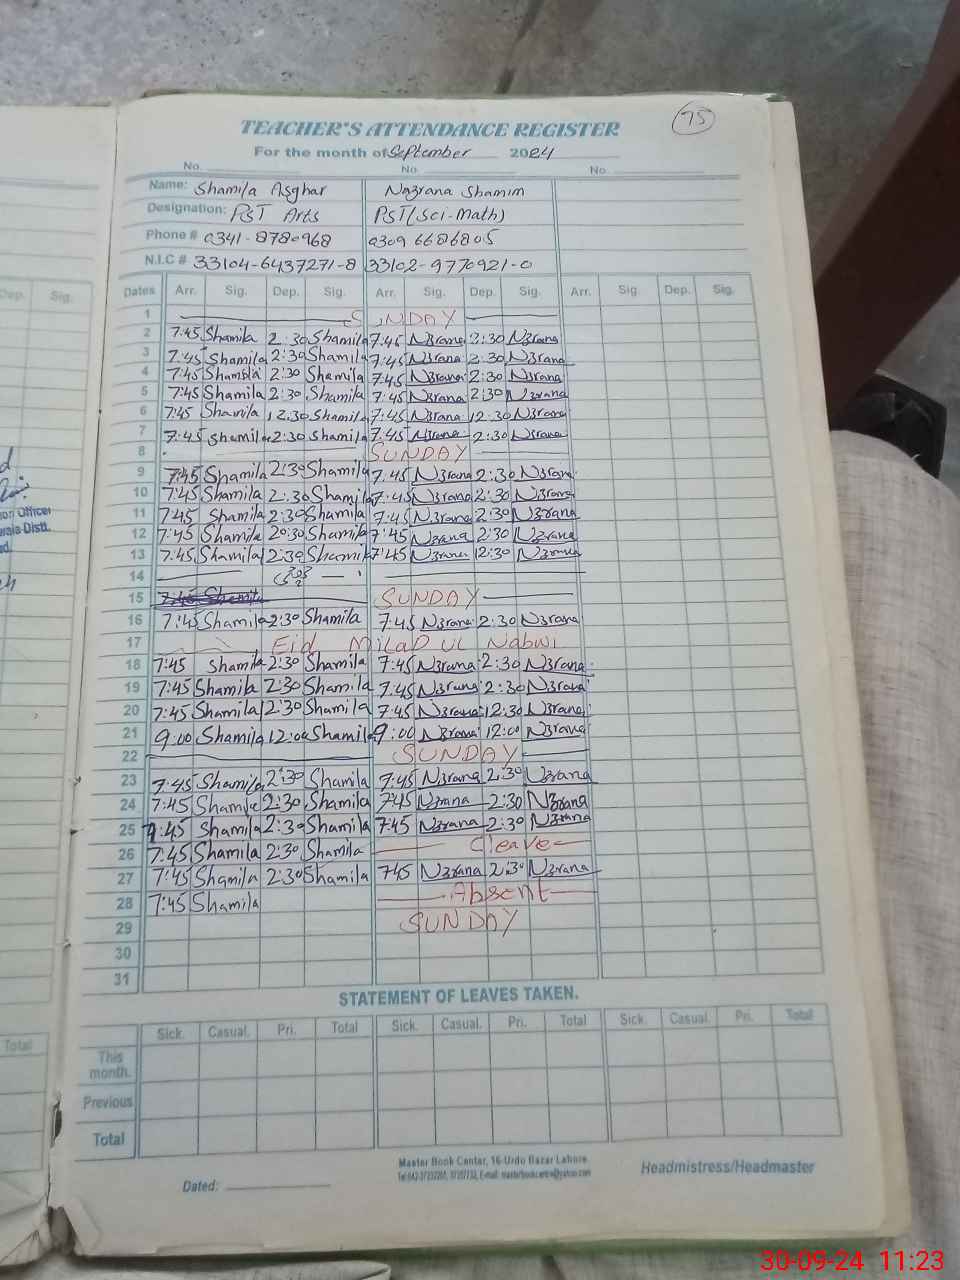 75
TEACHER'S ATTENDANCE REGISTER
For the month of September 2024
No. No. No.
Name: Shamila Asghar Nazrana Shamim
Designation: PST Arts PST(Sci-Math)
Phone # 0341-8780968 0309 6686805
N.I.C # 33104-6437271-8 33102-9770921-0
Dates Arr. Sig. Dep. Sig. Arr. Sig. Dep. Sig. Arr. Sig. Dep. Sig.
1 SUNDAY
2 7:45 Shamila 2:30 Shamila 7:45 N3rana 2:30 N3rana
3 7:45 Shamila 2:30 Shamila 7:45 N3rana 2:30 N3rana
4 7:45 Shamila 2:30 Shamila 7:45 N3rana 2:30 N3rana
5 7:45 Shamila 2:30 Shamila 7:45 N3rana 2:30 N3rana
6 7:45 Shamila 12:30 Shamila 7:45 N3rana 12:30 N3rana
7 7:45 Shamila 2:30 Shamila 7:45 N3rana 2:30 N3rana
8 SUNDAY
9 7:45 Shamila 2:30 Shamila 7:45 N3rana 2:30 N3rana
10 7:45 Shamila 2:30 Shamila 7:45 N3rana 2:30 N3rana
11 7:45 Shamila 2:30 Shamila 7:45 N3rana 2:30 N3rana
12 7:45 Shamila 20:30 Shamila 7:45 N3rana 2:30 N3rana
13 7:45 Shamila 2:30 Shamila 7:45 N3rana 12:30 N3rana
14
15 7:45 Shamila SUNDAY
16 7:45 Shamila 2:30 Shamila 7:45 N3rana 2:30 N3rana
17 Eid MilaD UL Nabwi
18 7:45 Shamila 2:30 Shamila 7:45 N3rana 2:30 N3rana
19 7:45 Shamila 2:30 Shamila 7:45 N3rana 2:30 N3rana
20 7:45 Shamila 2:30 Shamila 7:45 N3rana 12:30 N3rana
21 9:00 Shamila 12:00 Shamila 9:00 N3rana 12:00 N3rana
22 SUNDAY
23 7:45 Shamila 2:30 Shamila 7:45 N3rana 2:30 N3rana
24 7:45 Shamila 2:30 Shamila 745 N3rana 2:30 N3rana
25 7:45 Shamila 2:30 Shamila 7:45 N3rana 2:30 N3rana
26 7:45 Shamila 2:30 Shamila Cleave
27 7:45 Shamila 2:30 Shamila 745 N3rana 2:30 N3rana
28 7:45 Shamila Absent
29 SUNDAY
30
31
STATEMENT OF LEAVES TAKEN.
Sick. Casual. Pri. Total Sick. Casual. Pri. Total Sick. Casual. Pri. Total
This month.
Previous
Total
Master Book Center, 16-Urdu Bazar Lahore.
Dated: Headmistress/Headmaster
Dep. Sig.
Total
30-09-24 11:23